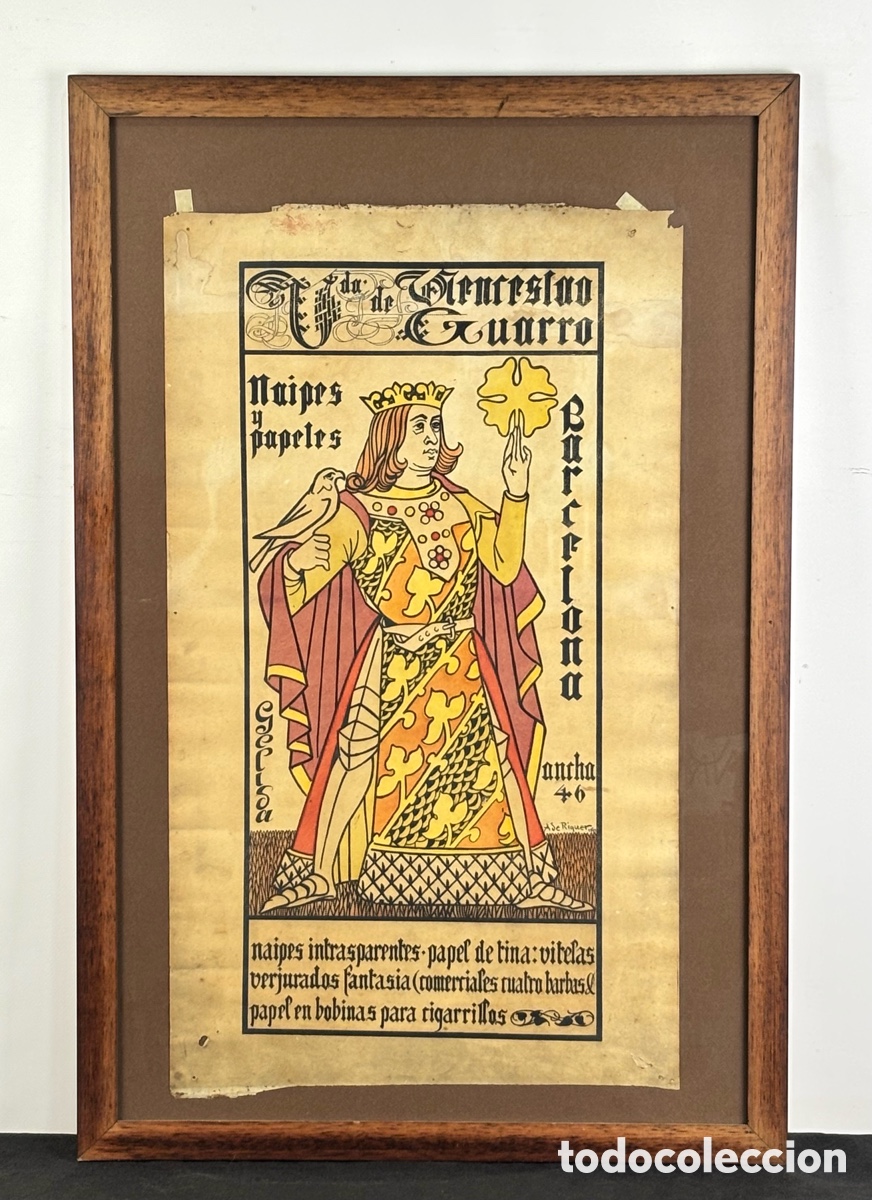 Vda. de Wenceslao
Guarro
Naipes
y
papeles
Barcelona
Gelida
ancha
46
A de Riquer
naipes intrasparentes · papel de tina: vitelas
verjurados fantasia (comerciales cuatro barbas &
papel en bobinas para cigarrillos
todocoleccion